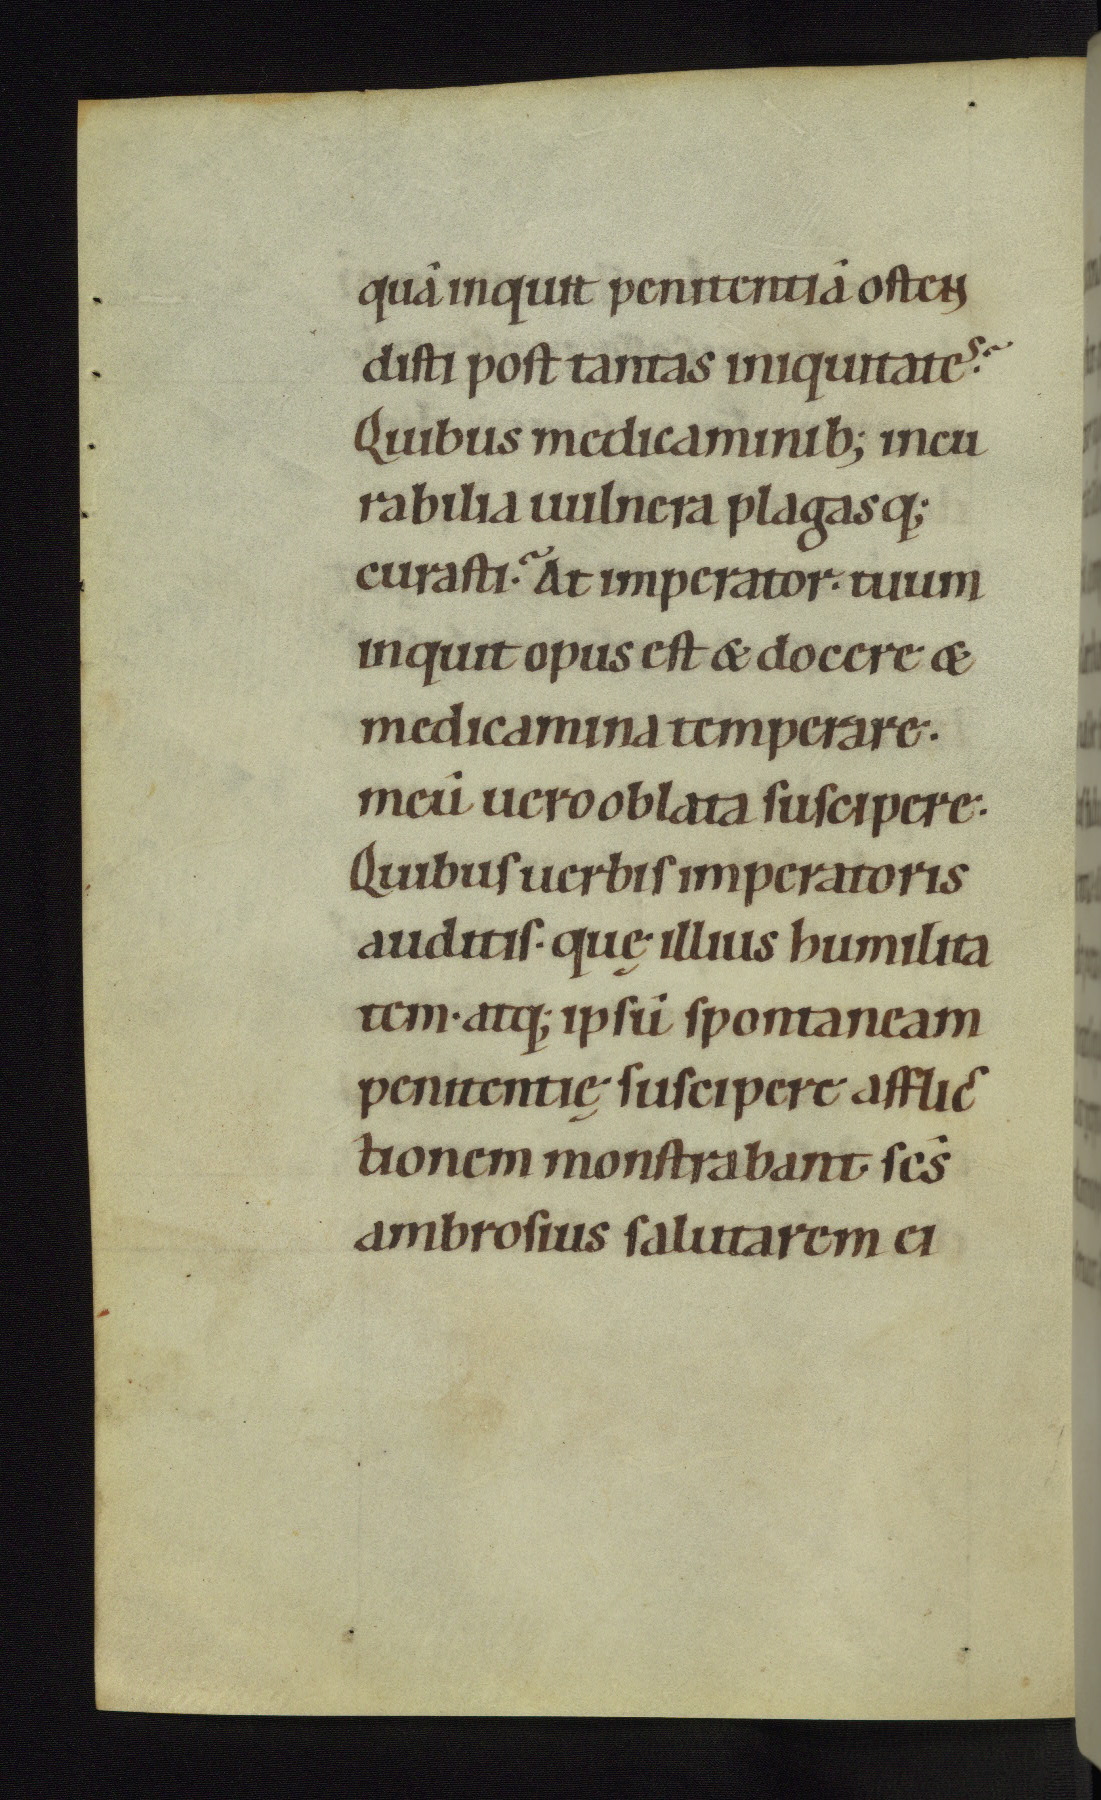 quā inquit penitentiā osten
disti post tantas iniquitates?
Quibus medicaminib; incu
rabilia uulnera plagasq;
curasti? At imperator. tuum
inquit opus est & docere &
medicamina temperare.
meū uero oblata suscipere.
Quibus uerbis imperatoris
auditis. quę illius humilita
tem. atq; ipsū spontaneam
penitentię suscipere afflic
tionem monstrabant. scs̄
ambrosius salutarem ei